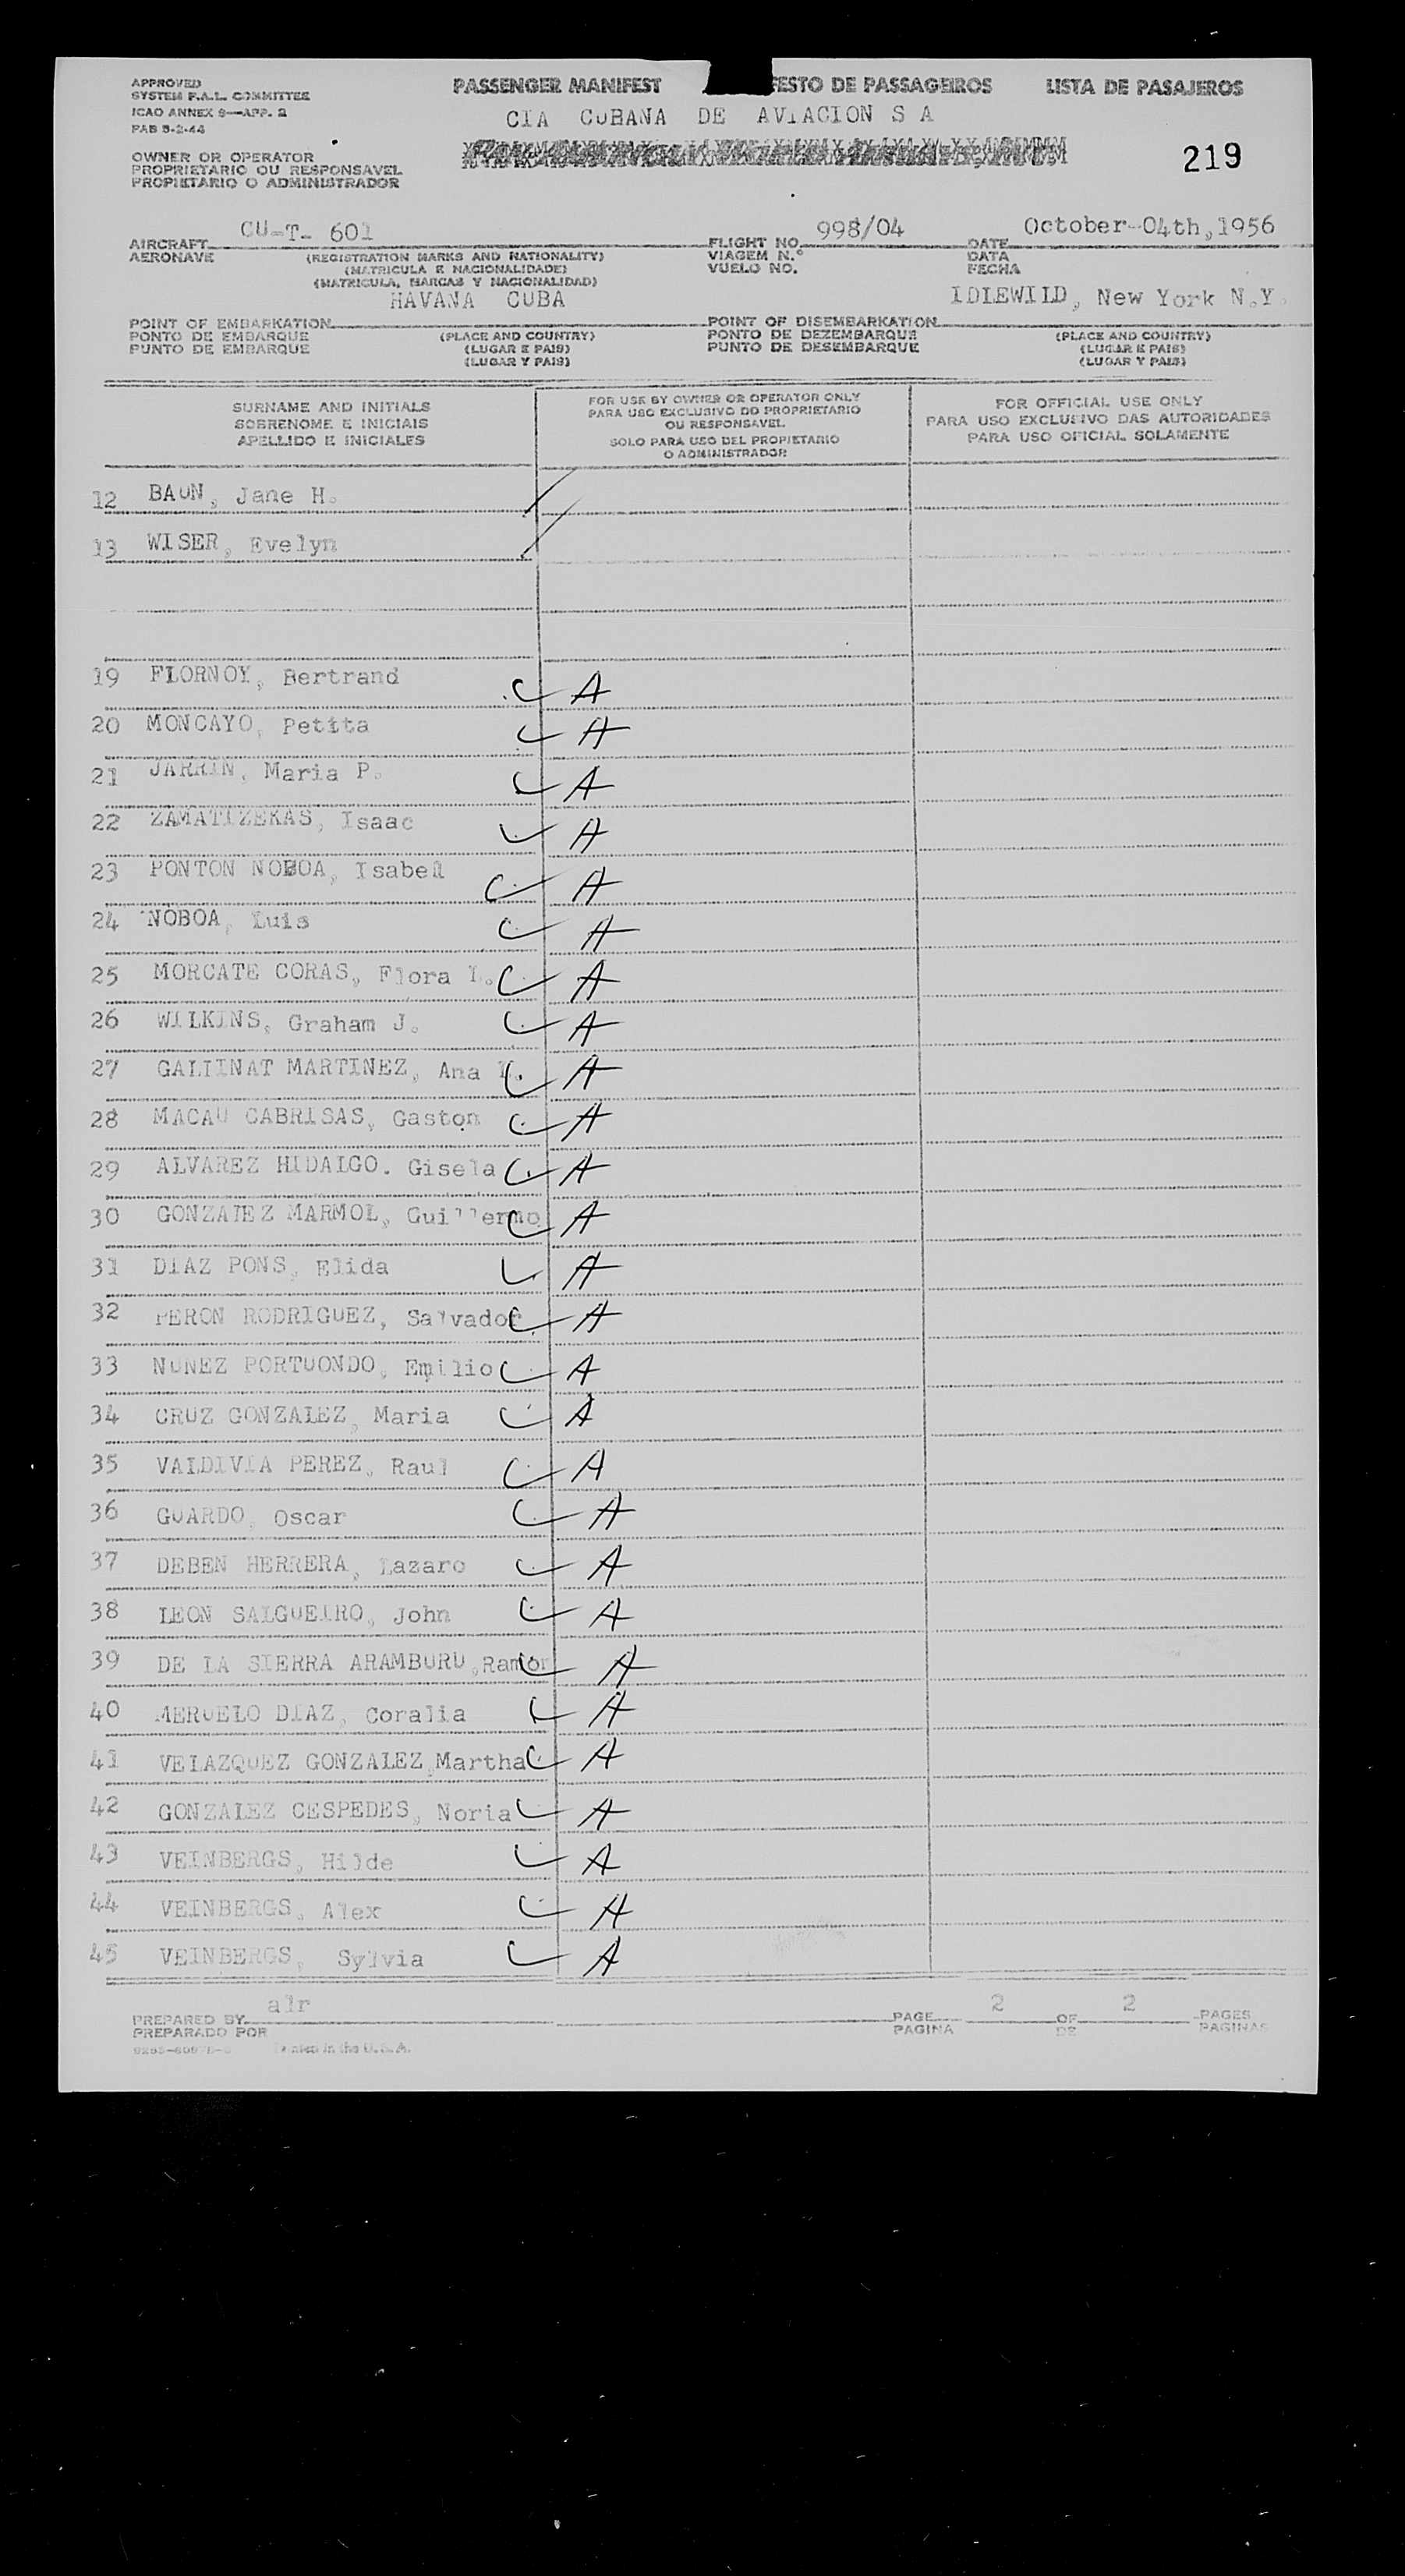 APPROVED
SYSTEM F.A.L. COMMITTEE
ICAO ANNEX 9—APP. 2
PAB 5-2-44
PASSENGER MANIFEST ESTO DE PASSAGEIROS LISTA DE PASAJEROS
CIA CUBANA DE AVIACION S A
219
OWNER OR OPERATOR
PROPRIETARIO OU RESPONSAVEL
PROPIETARIO O ADMINISTRADOR
AIRCRAFT CU-T- 601 FLIGHT NO. 998/04 DATE October-04th,1956
AERONAVE (REGISTRATION MARKS AND NATIONALITY) VIAGEM N.° DATA
(MATRICULA E NACIONALIDADE) VUELO NO. FECHA
(MATRICULA, MARCAS Y NACIONALIDAD)
POINT OF EMBARKATION HAVANA CUBA POINT OF DISEMBARKATION IDLEWILD, New York N.Y.
PONTO DE EMBARQUE (PLACE AND COUNTRY) PONTO DE DEZEMBARQUE (PLACE AND COUNTRY)
PUNTO DE EMBARQUE (LUGAR E PAIS) PUNTO DE DESEMBARQUE (LUGAR E PAIS)
(LUGAR Y PAIS) (LUGAR Y PAIS)
SURNAME AND INITIALS
SOBRENOME E INICIAIS
APELLIDO E INICIALES
FOR USE BY OWNER OR OPERATOR ONLY
PARA USO EXCLUSIVO DO PROPRIETARIO
OU RESPONSAVEL
SOLO PARA USO DEL PROPIETARIO
O ADMINISTRADOR
FOR OFFICIAL USE ONLY
PARA USO EXCLUSIVO DAS AUTORIDADES
PARA USO OFICIAL SOLAMENTE
12 BAUN, Jane H.
13 WISER, Evelyn
19 FLORNOY, Bertrand A
20 MONCAYO, Petita A
21 JARRIN, Maria P. A
22 ZAMATIZEKAS, Isaac A
23 PONTON NOBOA, Isabel A
24 NOBOA, Luis A
25 MORCATE CORAS, Flora L. A
26 WILKINS, Graham J. A
27 GALLINAT MARTINEZ, Ana A
28 MACAU CABRISAS, Gaston A
29 ALVAREZ HIDALGO. Gisela A
30 GONZALEZ MARMOL, Guillermo A
31 DIAZ PONS, Elida A
32 PERON RODRIGUEZ, Salvador A
33 NUNEZ PORTUONDO, Emilio A
34 CRUZ GONZALEZ, Maria A
35 VALDIVIA PEREZ, Raul A
36 GUARDO, Oscar A
37 DEBEN HERRERA, Lazaro A
38 LEON SALGUEIRO, John A
39 DE LA SIERRA ARAMBURU,Ramon A
40 MERUELO DIAZ, Coralia A
41 VELAZQUEZ GONZALEZ,Martha A
42 GONZALEZ CESPEDES, Noria A
43 VEINBERGS, Hilde A
44 VEINBERGS, Alex A
45 VEINBERGS, Sylvia A
PREPARED BY alr PAGE 2 OF 2 PAGES
PREPARADO POR PAGINA DE PAGINAS
Printed in the U.S.A.